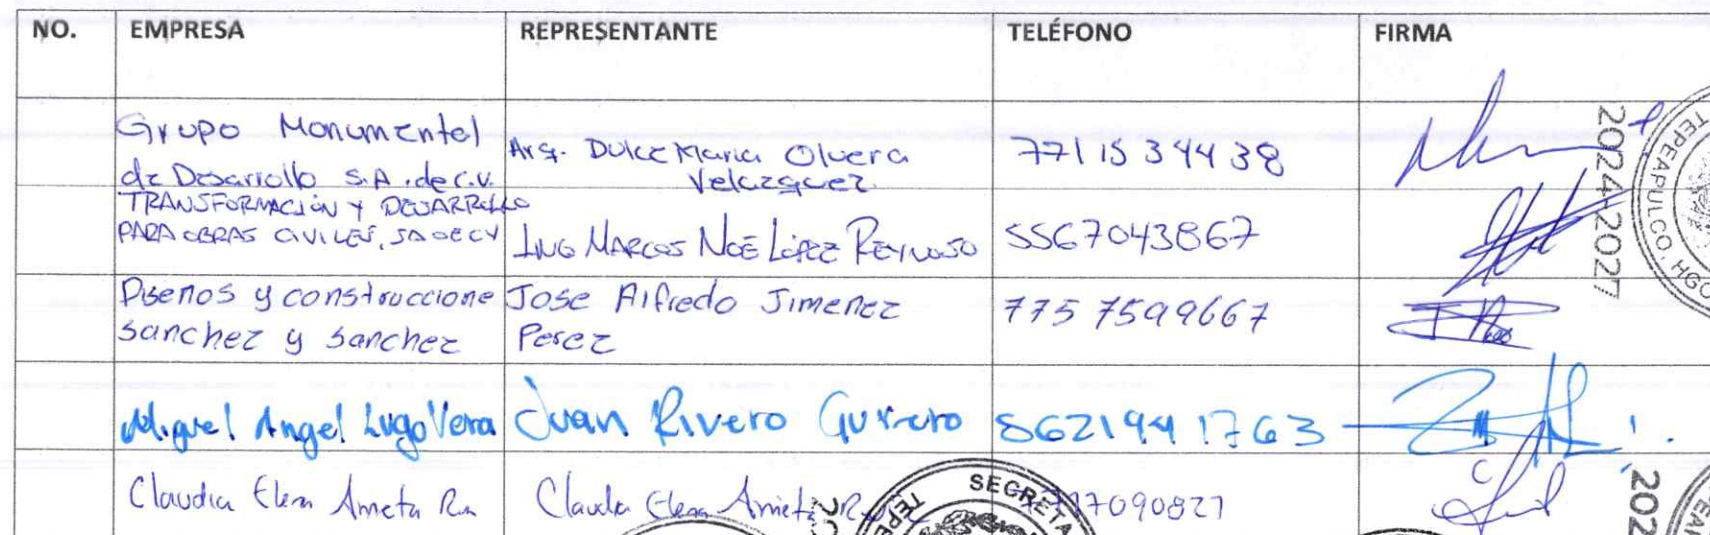 NO. EMPRESA REPRESENTANTE TELÉFONO FIRMA
Grupo Monumental
de Desarrollo S.A. de C.V.
Arq. Dulce Maria Olvera
Velazquez
7711534438
TRANSFORMACIÓN Y DESARROLLO
PARA OBRAS CIVILES, SA DE CV
ING MARCOS NOÉ LÓPEZ REYNOSO
5567043867
Diseños y construccione
Sanchez y Sanchez
Jose Alfredo Jimenez
Perez
775 7599667
Miguel Angel Lugo Vera
Juan Rivero
5621941763
Claudia Elena Arrieta
Claudia Elena Arrieta
7090827
2024-2027
TEPEAPULCO, HGO
SECRETA
TEPE
202